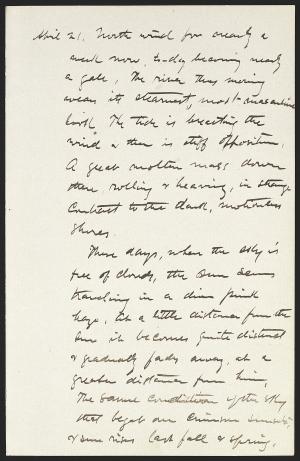 April 21. North wind for nearly a
week now, to-day becoming nearly
a gale. The river this morning
wears its sternest, most masculine
look. The tide is breasting the
wind & there is stiff opposition.
A great molten mass down
there, rolling & heaving, in strange
contrast to the dark, motionless
shores.
These days, when the sky is
free of clouds, the sun seems
travelling in a dim pink
haze. At a little distance from the
sun it becomes quite distinct
& gradually fades away, at a
greater distance from him.
The same condition of the sky
that begat our crimson sunsets,
& sun rises last fall & spring.